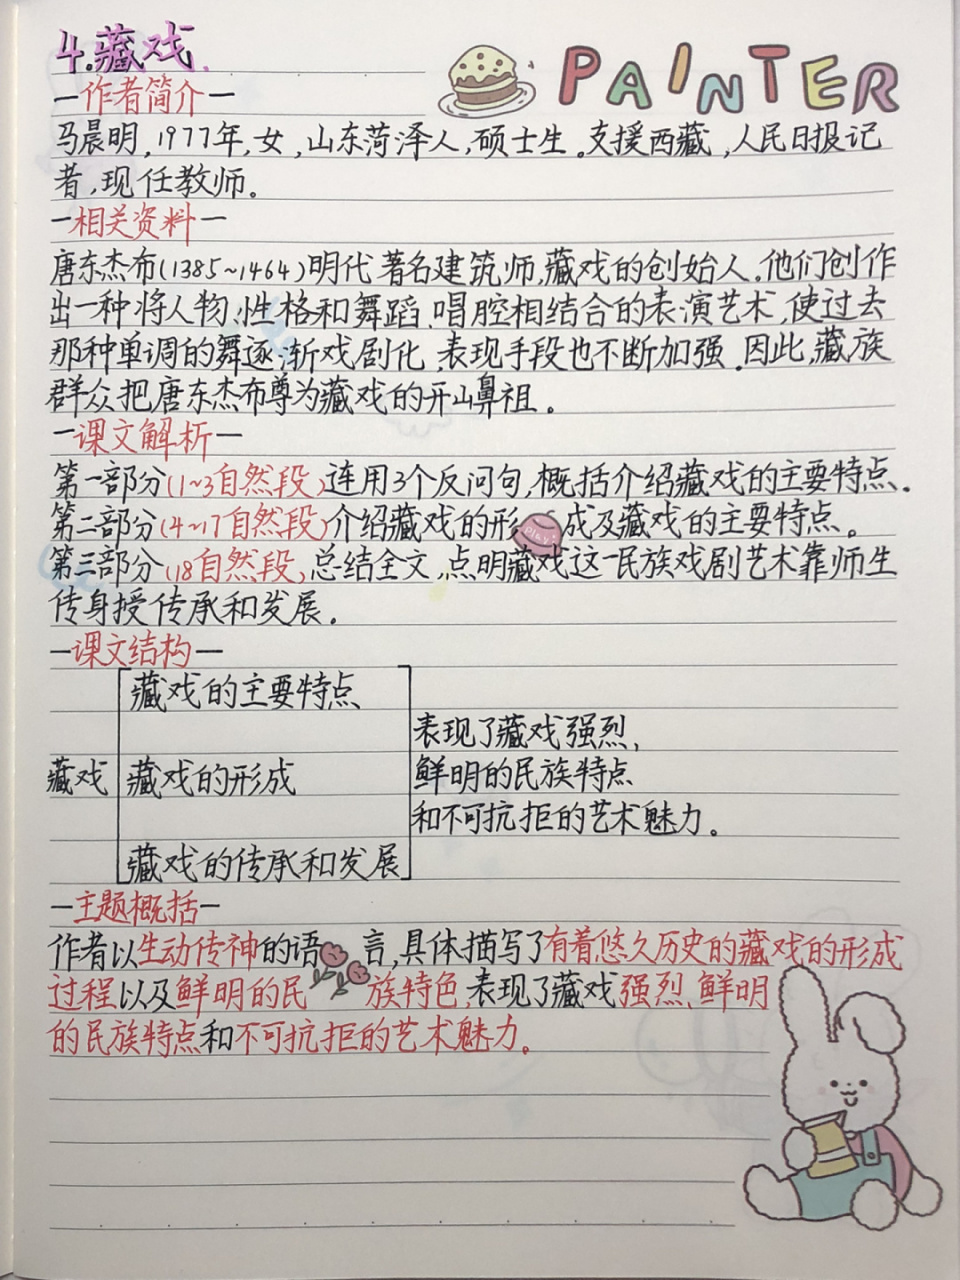 4.藏戏.
PAINTER
一作者简介一
马晨明,1977年,女,山东菏泽人,硕士生.支援西藏,人民日报记
者,现任教师。
一相关资料一
唐东杰布(1385~1464)明代著名建筑师,藏戏的创始人.他们创作
出一种将人物、性格和舞蹈、唱腔相结合的表演艺术,使过去
那种单调的舞逐渐戏剧化,表现手段也不断加强.因此,藏族
群众把唐东杰布尊为藏戏的开山鼻祖。
一课文解析一
第一部分(1~3自然段)连用3个反问句,概括介绍藏戏的主要特点.
第二部分(4~17自然段)介绍藏戏的形成及藏戏的主要特点。
Play!
第三部分(18自然段)总结全文,点明藏戏这一民族戏剧艺术靠师生
传身授传承和发展.
一课文结构一
藏戏的主要特点
表现了藏戏强烈,
藏戏 藏戏的形成 鲜明的民族特点
和不可抗拒的艺术魅力。
藏戏的传承和发展
一主题概括一
作者以生动传神的语言,具体描写了有着悠久历史的藏戏的形成
过程以及鲜明的民族特色,表现了藏戏强烈、鲜明
的民族特点和不可抗拒的艺术魅力。